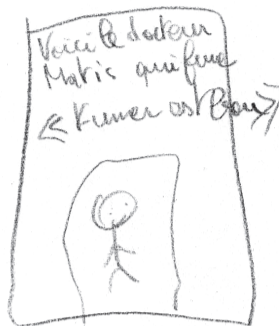 Voici le docteur
Matis qui fume
« Fumer est bon »